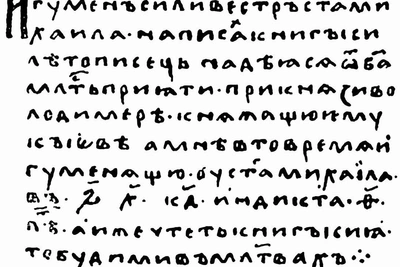 Игуменъ силивестръ ст҃аго ми
хаила· написаⷯ книгы си
лѣтописець надѣꙗсѧ ѿ б҃а
млⷭ҇ть приꙗти· при кнѧзи во
лодимерѣ· кнѧжащю ѥму
кыѥвѣ а мнѣ в то времѧ и
гуменѧщю· оу ст҃аго михаила·
к҃д· индикта· ѳ҃·
а иже чтеть книгы сиꙗ·
то буди ми въ млт҃вахъ